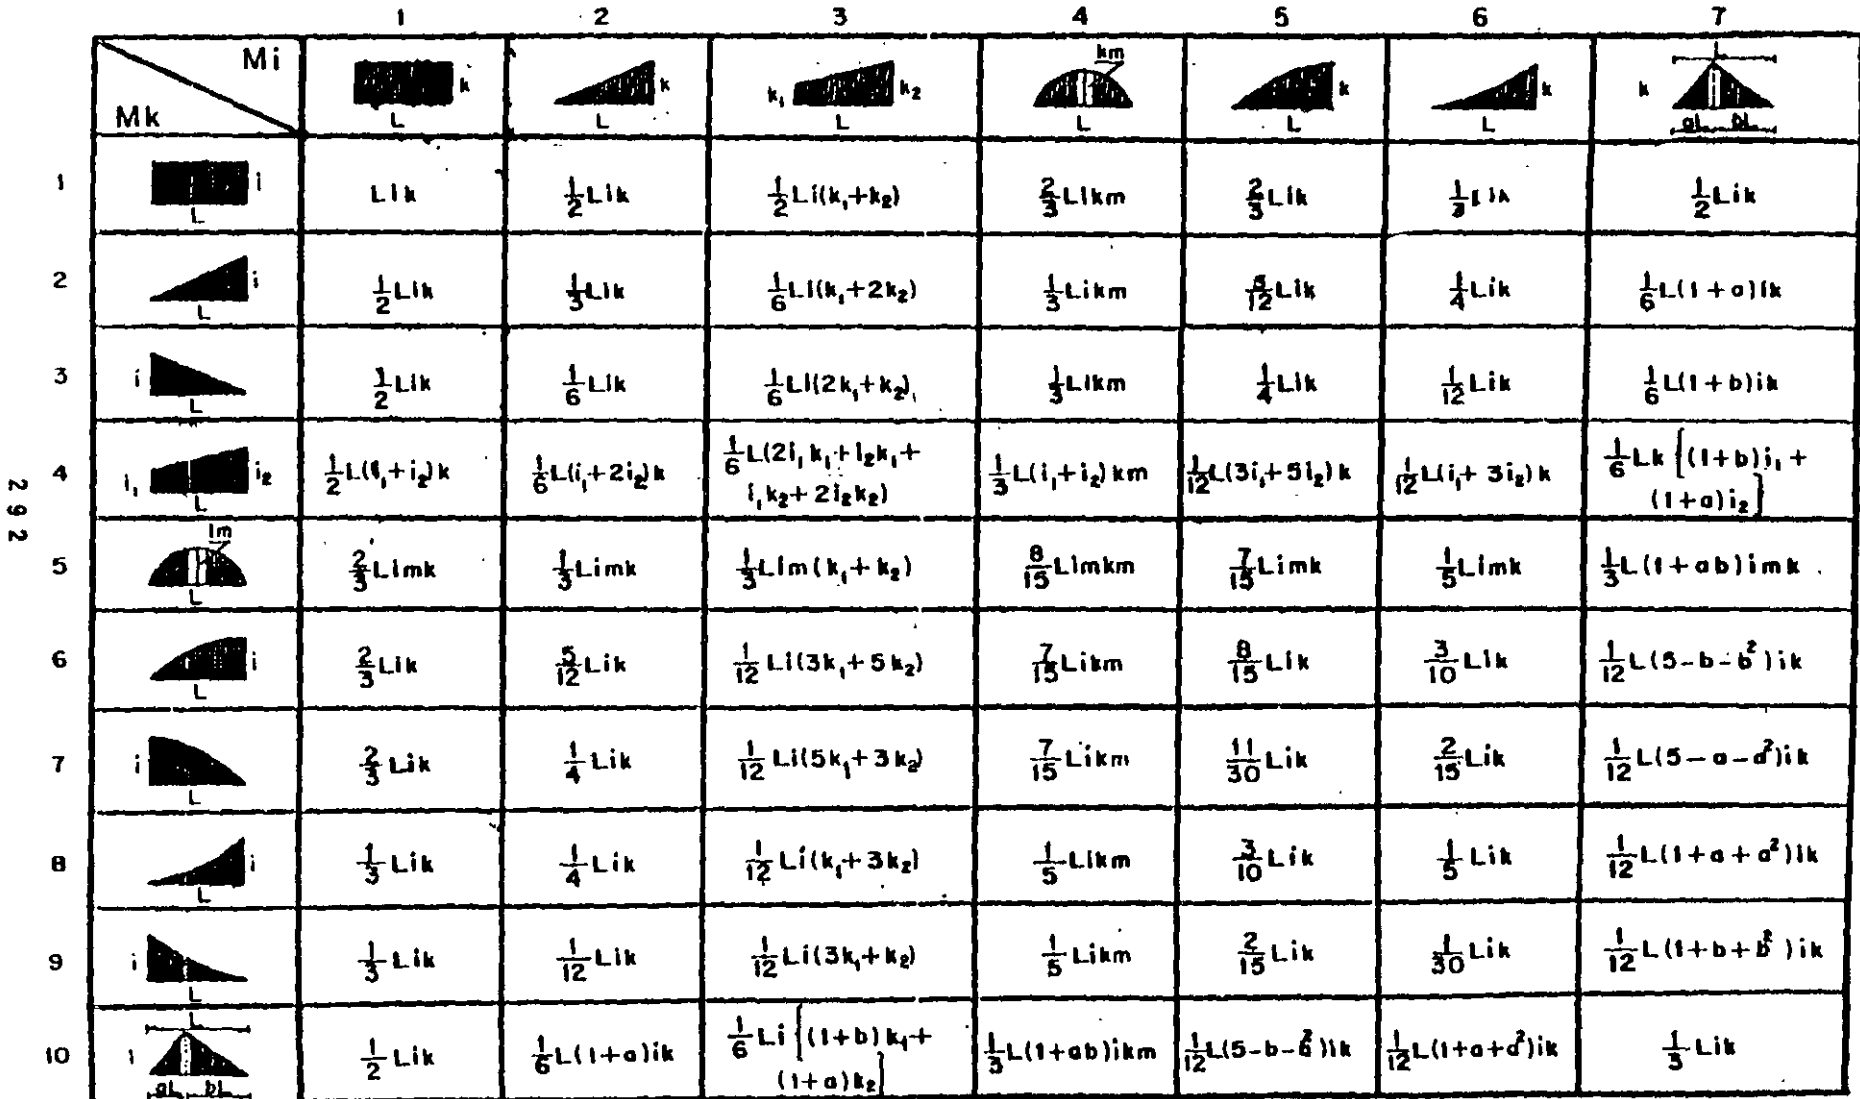 1 2 3 4 5 6 7
Mi
Mk
k L
k L
k₁ k₂ L
km L
k L
k L
L k aL bL
1 i L Lik ½Lik ½Li(k₁+k₂) ⅔Likm ⅔Lik ⅓Lik ½Lik
2 i L ½Lik ⅓Lik 1/6Li(k₁+2k₂) ⅓Likm 5/12Lik ¼Lik 1/6L(1+a)ik
3 i L ½Lik 1/6Lik 1/6Li(2k₁+k₂) ⅓Likm ¼Lik 1/12Lik 1/6L(1+b)ik
4 i₁ i₂ L ½L(i₁+i₂)k 1/6L(i₁+2i₂)k 1/6L(2i₁k₁+i₂k₁+ i₁k₂+2i₂k₂) ⅓L(i₁+i₂)km 1/12L(3i₁+5i₂)k 1/12L(i₁+3i₂)k 1/6Lk{(1+b)i₁+ (1+a)i₂}
292
5 im L ⅔Limk ⅓Limk ⅓Lim(k₁+k₂) 8/15Limkm 7/15Limk 1/5Limk ⅓L(1+ab)imk
6 i L ⅔Lik 5/12Lik 1/12Li(3k₁+5k₂) 7/15Likm 8/15Lik 3/10Lik 1/12L(5-b-b²)ik
7 i L ⅔Lik ¼Lik 1/12Li(5k₁+3k₂) 7/15Likm 11/30Lik 2/15Lik 1/12L(5-a-a²)ik
8 i L ⅓Lik ¼Lik 1/12Li(k₁+3k₂) 1/5Likm 3/10Lik 1/5Lik 1/12L(1+a+a²)ik
9 i L ⅓Lik 1/12Lik 1/12Li(3k₁+k₂) 1/5Likm 2/15Lik 1/30Lik 1/12L(1+b+b²)ik
10 L i aL bL ½Lik 1/6L(1+a)ik 1/6Li{(1+b)k₁+ (1+a)k₂} ⅓L(1+ab)ikm 1/12L(5-b-b²)ik 1/12L(1+a+a²)ik ⅓Lik